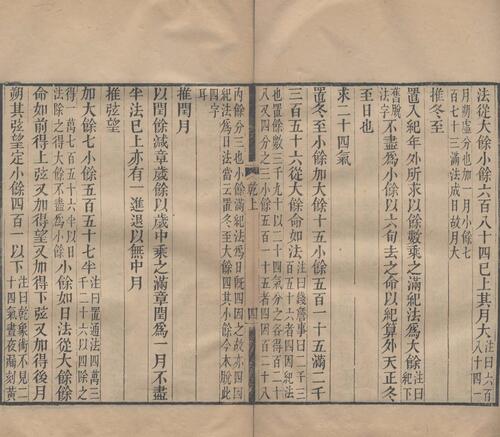 法從大餘小餘六百八十四已上其月大注曰六百八十四一
月朔虛分也加一月小餘七百七十三滿法成日故月大
推冬至
置入紀年外所求以餘數乘之滿紀法為大餘注曰紀下
舊脫法字不盡為小餘以六旬去之命以紀算外天正冬
至日也
求二十四氣
置冬至小餘加大餘十五小餘五百一十五滿二千
三百五十六從大餘命如法注曰錢詹事曰二千三百五十六者四因紀法
也置餘數三千九十以二十四氣分之各得百二十八又四分之三小餘五百一十五者四因百二十八
乾上
四
內餘分三也小餘滿紀法為日旣四因之故亦四因紀法為日法當云置冬至大餘四其小餘今本脫此
四字耳
推閏月
以閏餘減章歲餘以歲中乘之滿章閏為一月不盡
半法已上亦有一進退以無中月
推弦望
加大餘七小餘五百五十七半注曰置通法四萬三千二十六以四除之
得一萬七百五十六半以日法除之得大餘不盡為小餘小餘如日法從大餘餘
命如前得上弦又加得望又加得下弦又加得後月
朔其弦望定小餘四百一以下注曰乾象術不見二十四氣晝夜漏刻黃